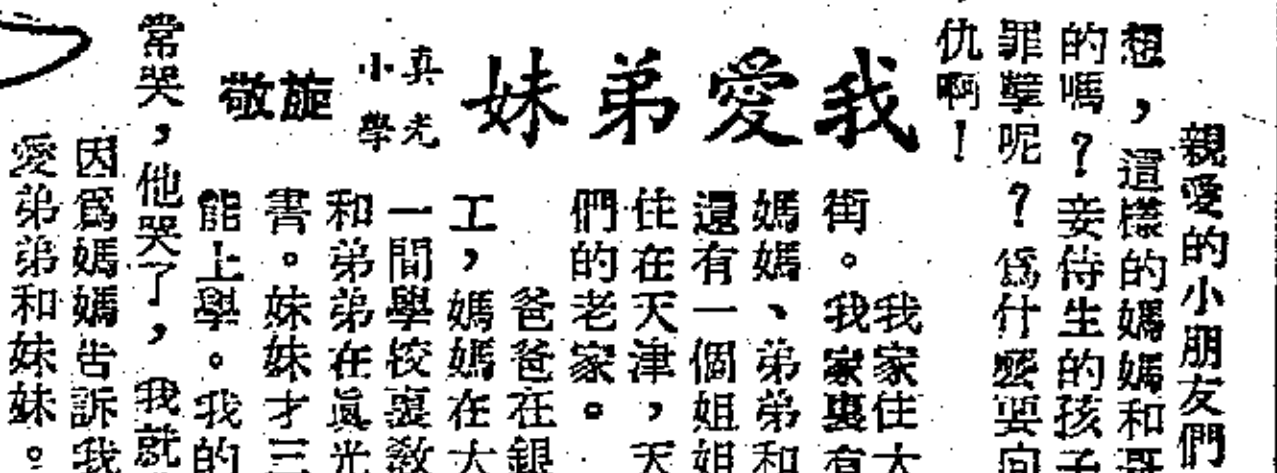 親愛的小朋友們
想，這樣的媽媽和哥
的嗎？妾侍生的孩子
罪孽呢？爲什麼要向
仇啊！
我愛弟妹
真光
小學
旋敬
我家住大
街。我家裏有
媽媽、弟弟和
還有一個姐姐
住在天津，天
們的老家。
爸爸在銀
工，媽媽在大
一間學校裏教
和弟弟在眞光
書。妹妹才三
能上學。我的
常哭，他哭了，我就
因爲媽媽告訴我
愛弟弟和妹妹。